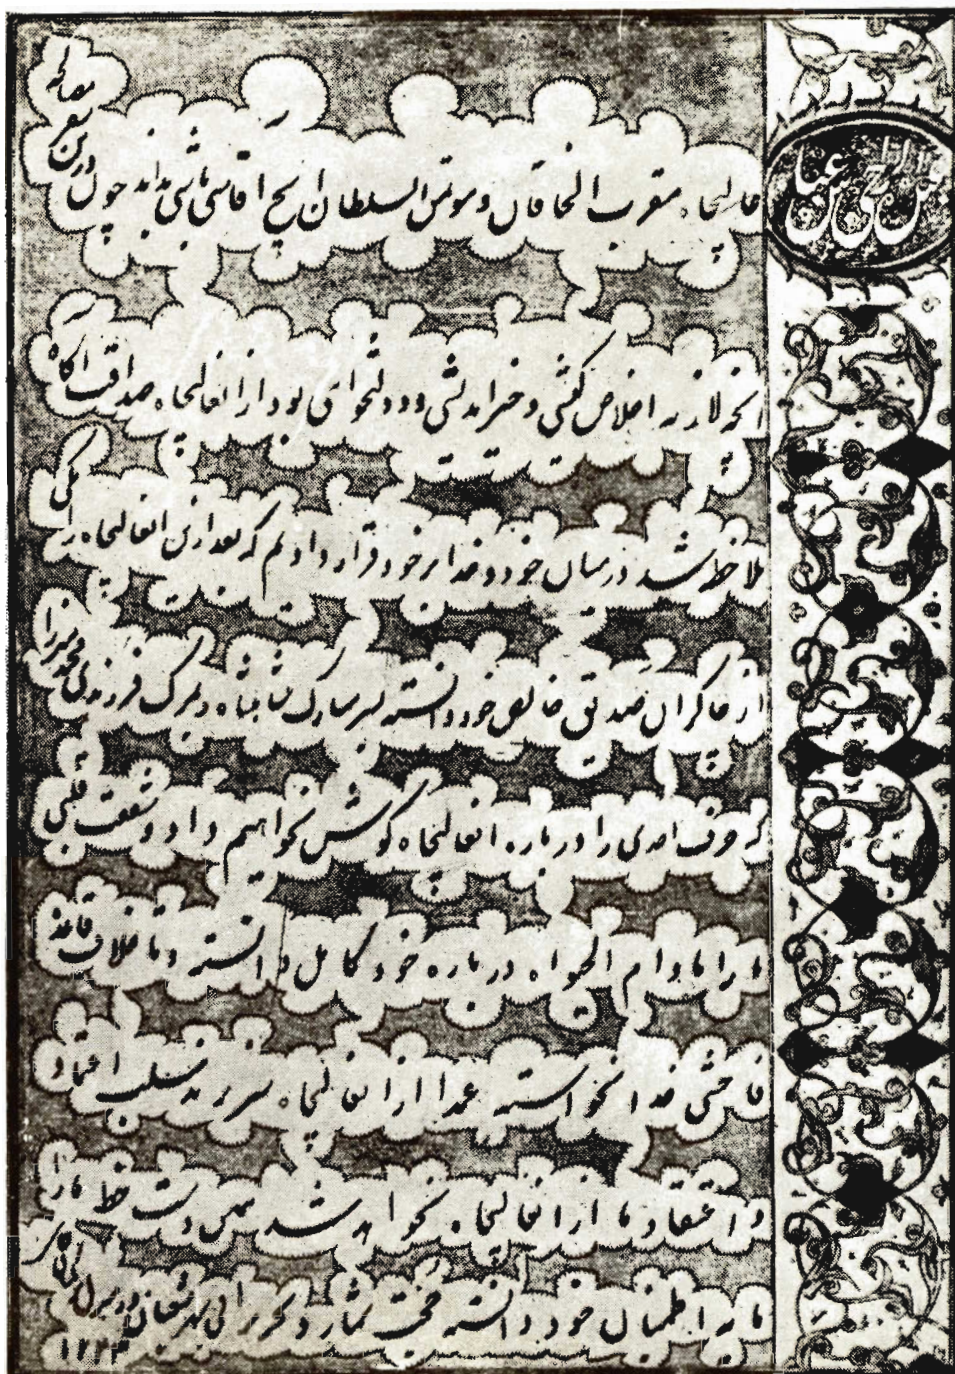 عالیجاه مقرب الخاقان و مؤتمن السلطان ایچ اقاسی باشی بداند چون درین سفر
انچه لازمه اخلاص کیشی و خیراندیشی و دولتخواهی بود از انعالیجاه صداقت اگاه
ملاحظه شد در میان خود و خدا بر خود قرار دادیم که بعد ازین انعالیجاه را یکی
از چاکران صدیق خالص خود دانسته بسر مبارک شاهنشاه و بمرگ فرزندی محمد میرزا
حرف احدی را درباره انعالیجاه گوش نخواهیم داد و شفقت قلبی
ما را مادام الحیواه درباره خود کامل دانسته و تا خلاف قاعده
فاحشی خدا نخواسته عمدا از انعالیجاه سر نزند سلب اعتماد
و اعتقاد ما از انعالیجاه نخواهد شد همین دست خط ما را
مایه اطمینان خود دانسته حجت شمارد تحریرا فی شهر شعبان در
۱۲۴۳